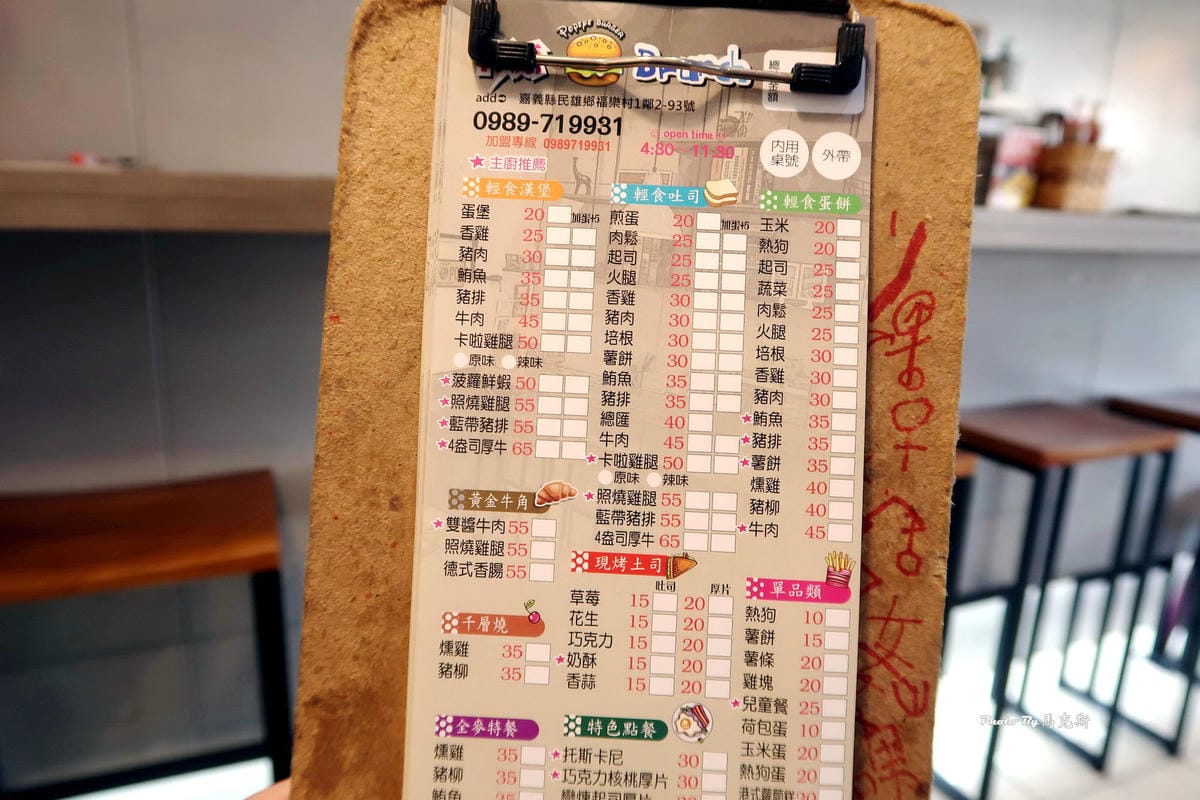 Popeye BURGER
Brunch
總金額
add 嘉義縣民雄鄉福樂村1鄰2-93號
0989-719931
加盟專線 0989719931
open time
4:30~11:30
內用桌號
外帶
★主廚推薦
輕食漢堡
加蛋+5
蛋堡 20
香雞 25
豬肉 30
鮪魚 35
豬排 35
牛肉 45
卡啦雞腿 50
原味 辣味
★菠蘿鮮蝦 50
★照燒雞腿 55
★藍帶豬排 55
★4盎司厚牛 65
黃金牛角
★雙醬牛肉 55
照燒雞腿 55
德式香腸 55
千層燒
燻雞 35
豬柳 35
全麥特餐
燻雞 35
豬柳 35
鮪魚 35
輕食吐司
加蛋+5
煎蛋 20
肉鬆 25
起司 25
火腿 25
香雞 30
豬肉 30
培根 30
薯餅 30
鮪魚 35
豬排 35
總匯 40
牛肉 45
★卡啦雞腿 50
原味 辣味
★照燒雞腿 55
藍帶豬排 55
4盎司厚牛 65
現烤土司
吐司 厚片
草莓 15 20
花生 15 20
巧克力 15 20
★奶酥 15 20
香蒜 15 20
特色點餐
★托斯卡尼 30
★巧克力核桃厚片 30
起司厚片 30
輕食蛋餅
玉米 20
熱狗 20
起司 25
蔬菜 25
肉鬆 25
火腿 25
培根 30
香雞 30
豬肉 30
★鮪魚 35
★豬排 35
★薯餅 35
燻雞 40
豬柳 40
★牛肉 45
單品類
熱狗 10
薯餅 15
薯條 20
雞塊 20
★兒童餐 25
荷包蛋 10
玉米蛋 20
熱狗蛋 20
港式蘿蔔糕 20
Photo By 馬克斯